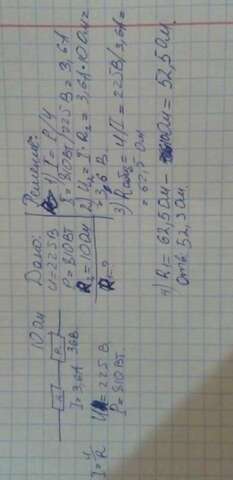 10 Ом
R
R
I=3,6А 36В
I=U/R
U=225 В
P=810 Вт.
Дано:
U=225В
P=810Вт
R₂=10Ом
R-?
Решение:
1) I=P/U
I=810Вт/225В=3,6А
2) U₂=I·R₂=3,6А·10Ом=
=3,6 В.
3) Rобщ=U/I=225В/3,6А=
=62,5 Ом
4) R=62,5Ом-10Ом=52,5Ом.
Отв. 52,5 Ом.